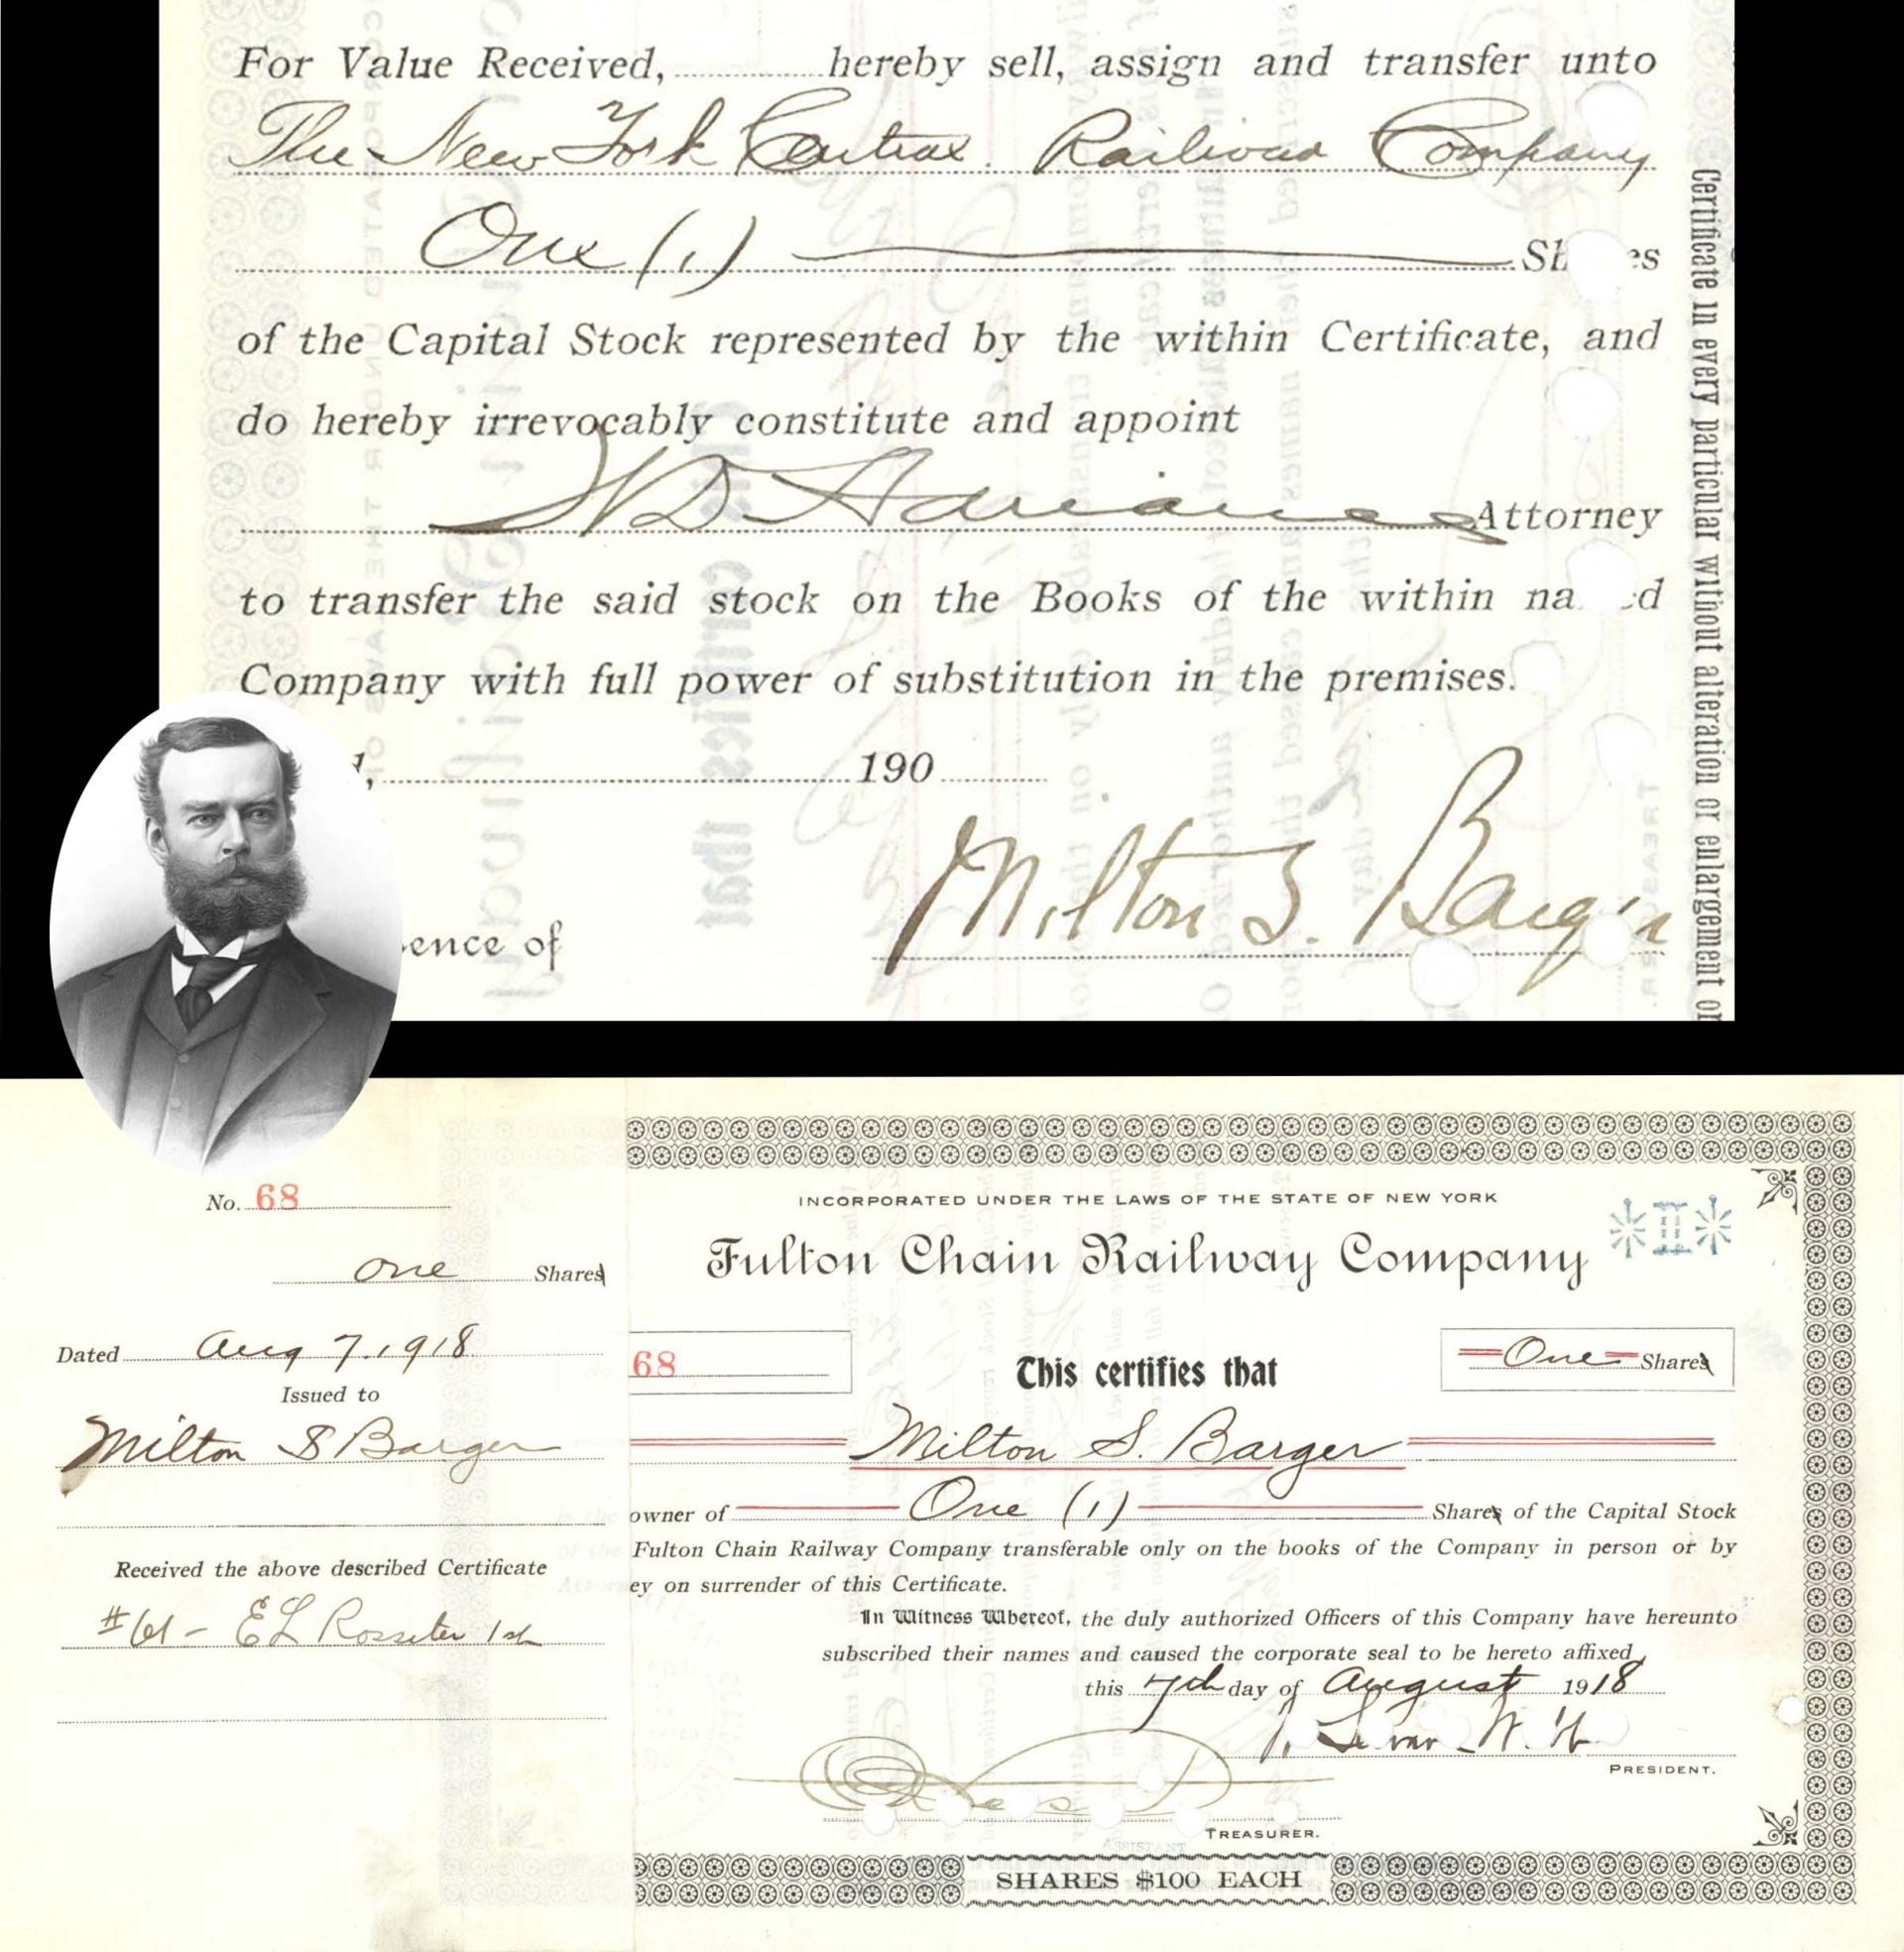 For Value Received, hereby sell, assign and transfer unto
The New York Central Railroad Company
One (1) Sh es
of the Capital Stock represented by the within Certificate, and
do hereby irrevocably constitute and appoint
Attorney
to transfer the said stock on the Books of the within na d
Company with full power of substitution in the premises.
190
ence of
Milton S. Barger
Certificate in every particular without alteration or enlargement or
No. 68
one Shares
Dated Aug 7, 1918
Issued to
Milton S Barger
Received the above described Certificate
#61 - E L Rossiter
INCORPORATED UNDER THE LAWS OF THE STATE OF NEW YORK
Fulton Chain Railway Company
68
This certifies that
One Shares
Milton S. Barger
owner of One (1) Shares of the Capital Stock
Fulton Chain Railway Company transferable only on the books of the Company in person or by
ey on surrender of this Certificate.
In Witness Whereof, the duly authorized Officers of this Company have hereunto
subscribed their names and caused the corporate seal to be hereto affixed
this 7th day of August 1918
PRESIDENT.
TREASURER.
SHARES $100 EACH